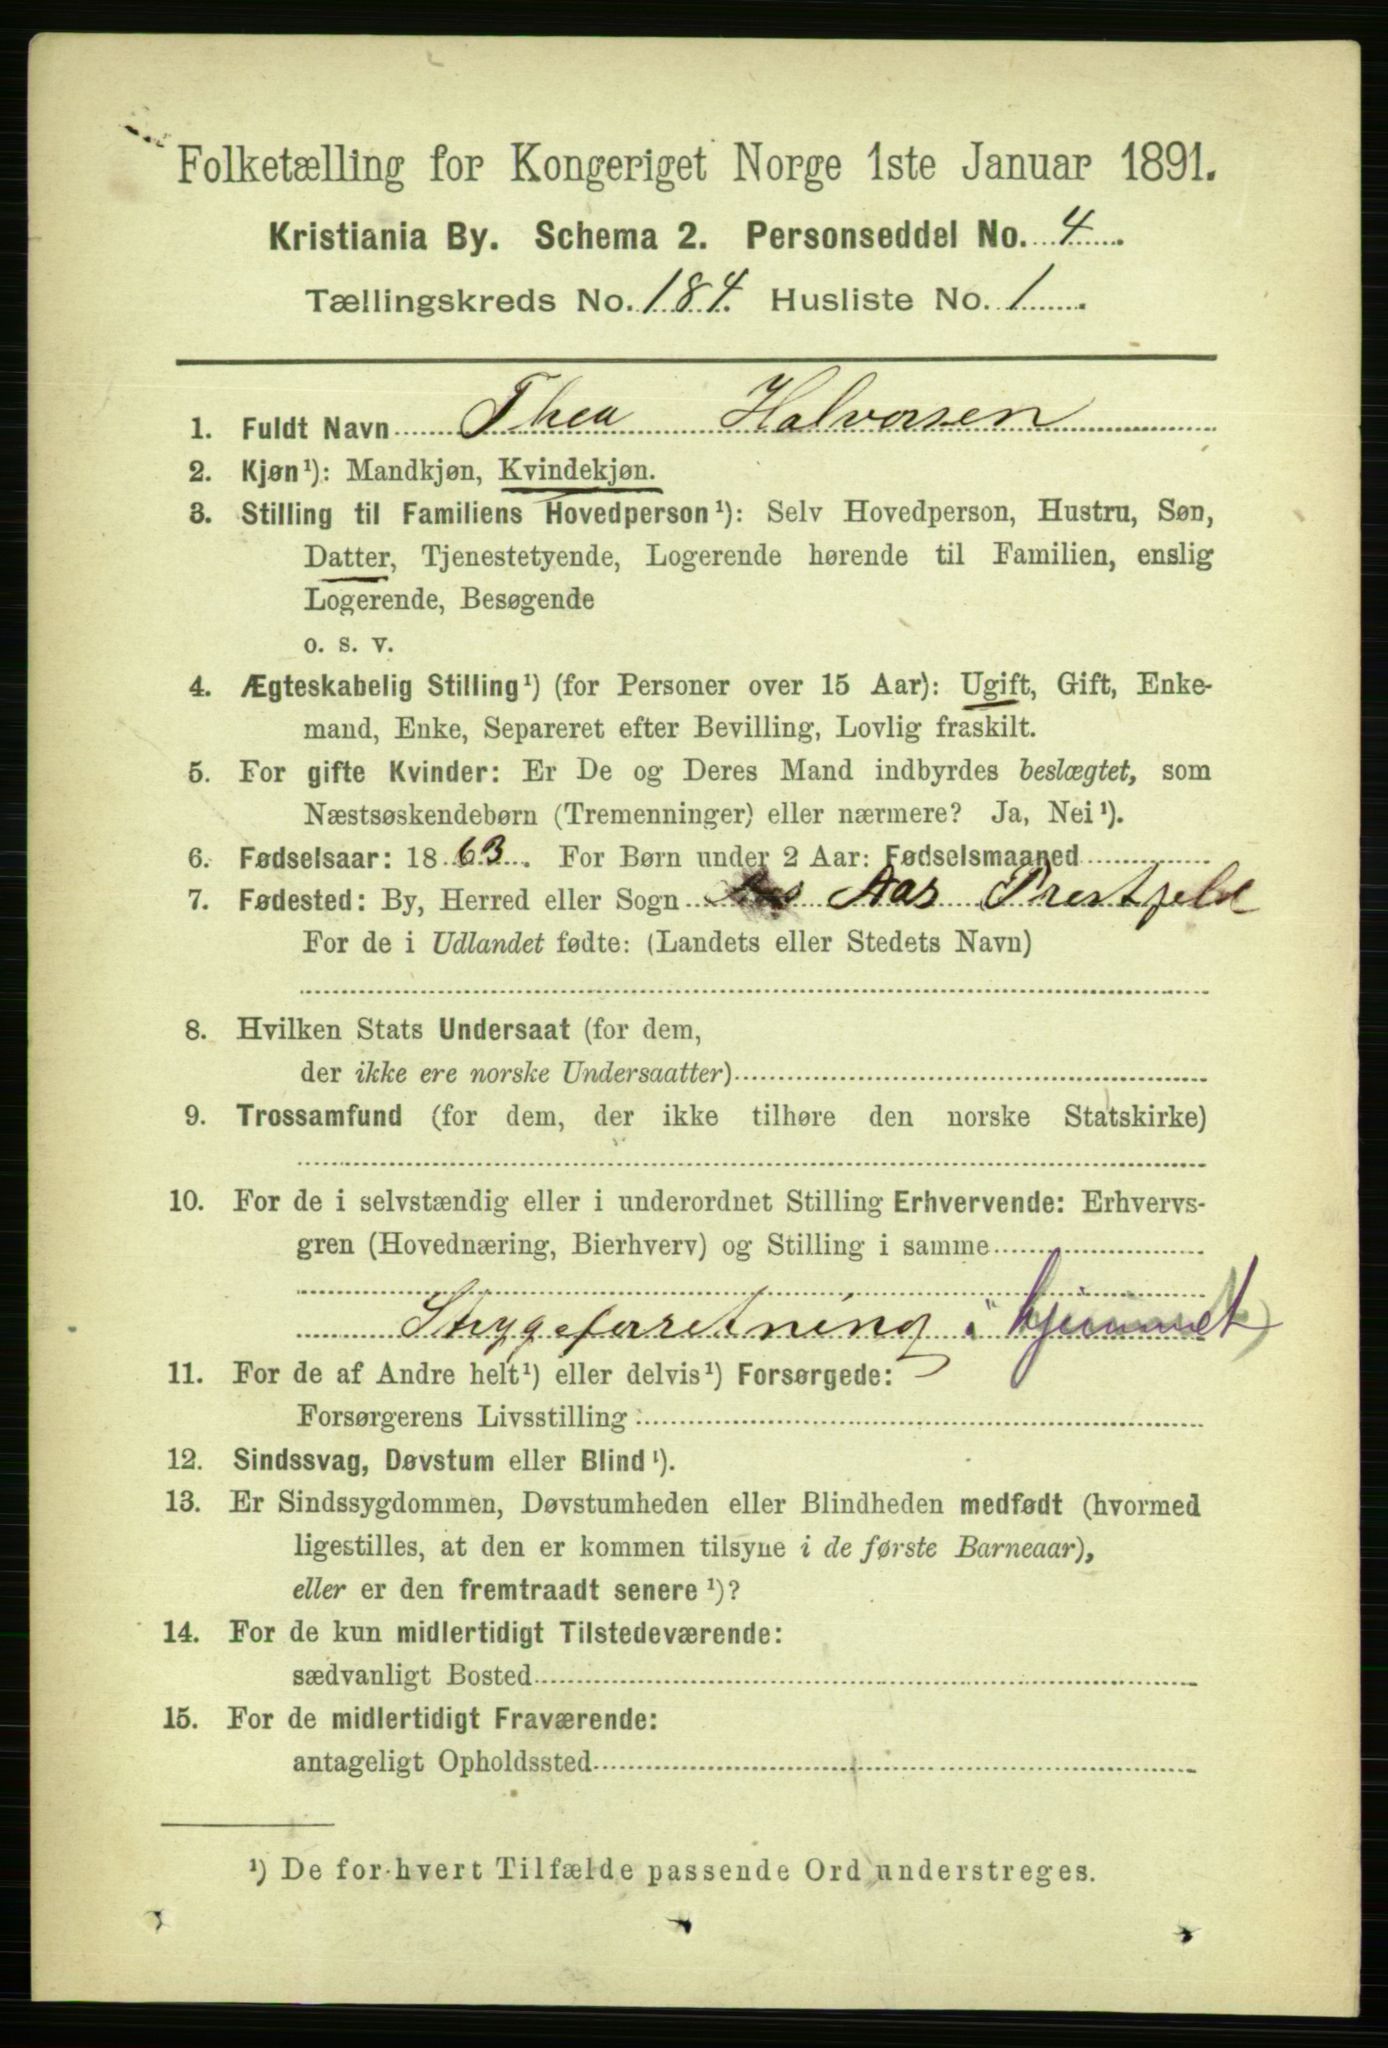 Folketælling for Kongeriget Norge 1ste Januar 1891.
Kristiania By. Schema 2. Personseddel No. 4
Tællingskreds No. 184. Husliste No. 1
1. Fuldt Navn Thea Halvorsen
2. Kjøn¹): Mandkjøn, Kvindekjøn.
3. Stilling til Familiens Hovedperson¹): Selv Hovedperson, Hustru, Søn,
Datter, Tjenestetyende, Logerende hørende til Familien, enslig
Logerende, Besøgende
o. s. v.
4. Ægteskabelig Stilling¹) (for Personer over 15 Aar): Ugift, Gift, Enke-
mand, Enke, Separeret efter Bevilling, Lovlig fraskilt.
5. For gifte Kvinder: Er De og Deres Mand indbyrdes beslægtet, som
Næstsøskendebørn (Tremenninger) eller nærmere? Ja, Nei¹).
6. Fødselsaar: 1863. For Børn under 2 Aar: Fødselsmaaned
7. Fødested: By, Herred eller Sogn Aas Prestjeld
For de i Udlandet fødte: (Landets eller Stedets Navn)
8. Hvilken Stats Undersaat (for dem,
der ikke ere norske Undersaatter)
9. Trossamfund (for dem, der ikke tilhøre den norske Statskirke)
10. For de i selvstændig eller i underordnet Stilling Erhvervende: Erhvervs-
gren (Hovednæring, Bierhverv) og Stilling i samme
Strygeforretning i hjemmet
11. For de af Andre helt¹) eller delvis¹) Forsørgede:
Forsørgerens Livsstilling:
12. Sindssvag, Døvstum eller Blind¹).
13. Er Sindssygdommen, Døvstumheden eller Blindheden medfødt (hvormed
ligestilles, at den er kommen tilsyne i de første Barneaar),
eller er den fremtraadt senere¹)?
14. For de kun midlertidigt Tilstedeværende:
sædvanligt Bosted
15. For de midlertidigt Fraværende:
antageligt Opholdssted
¹) De for hvert Tilfælde passende Ord understreges.